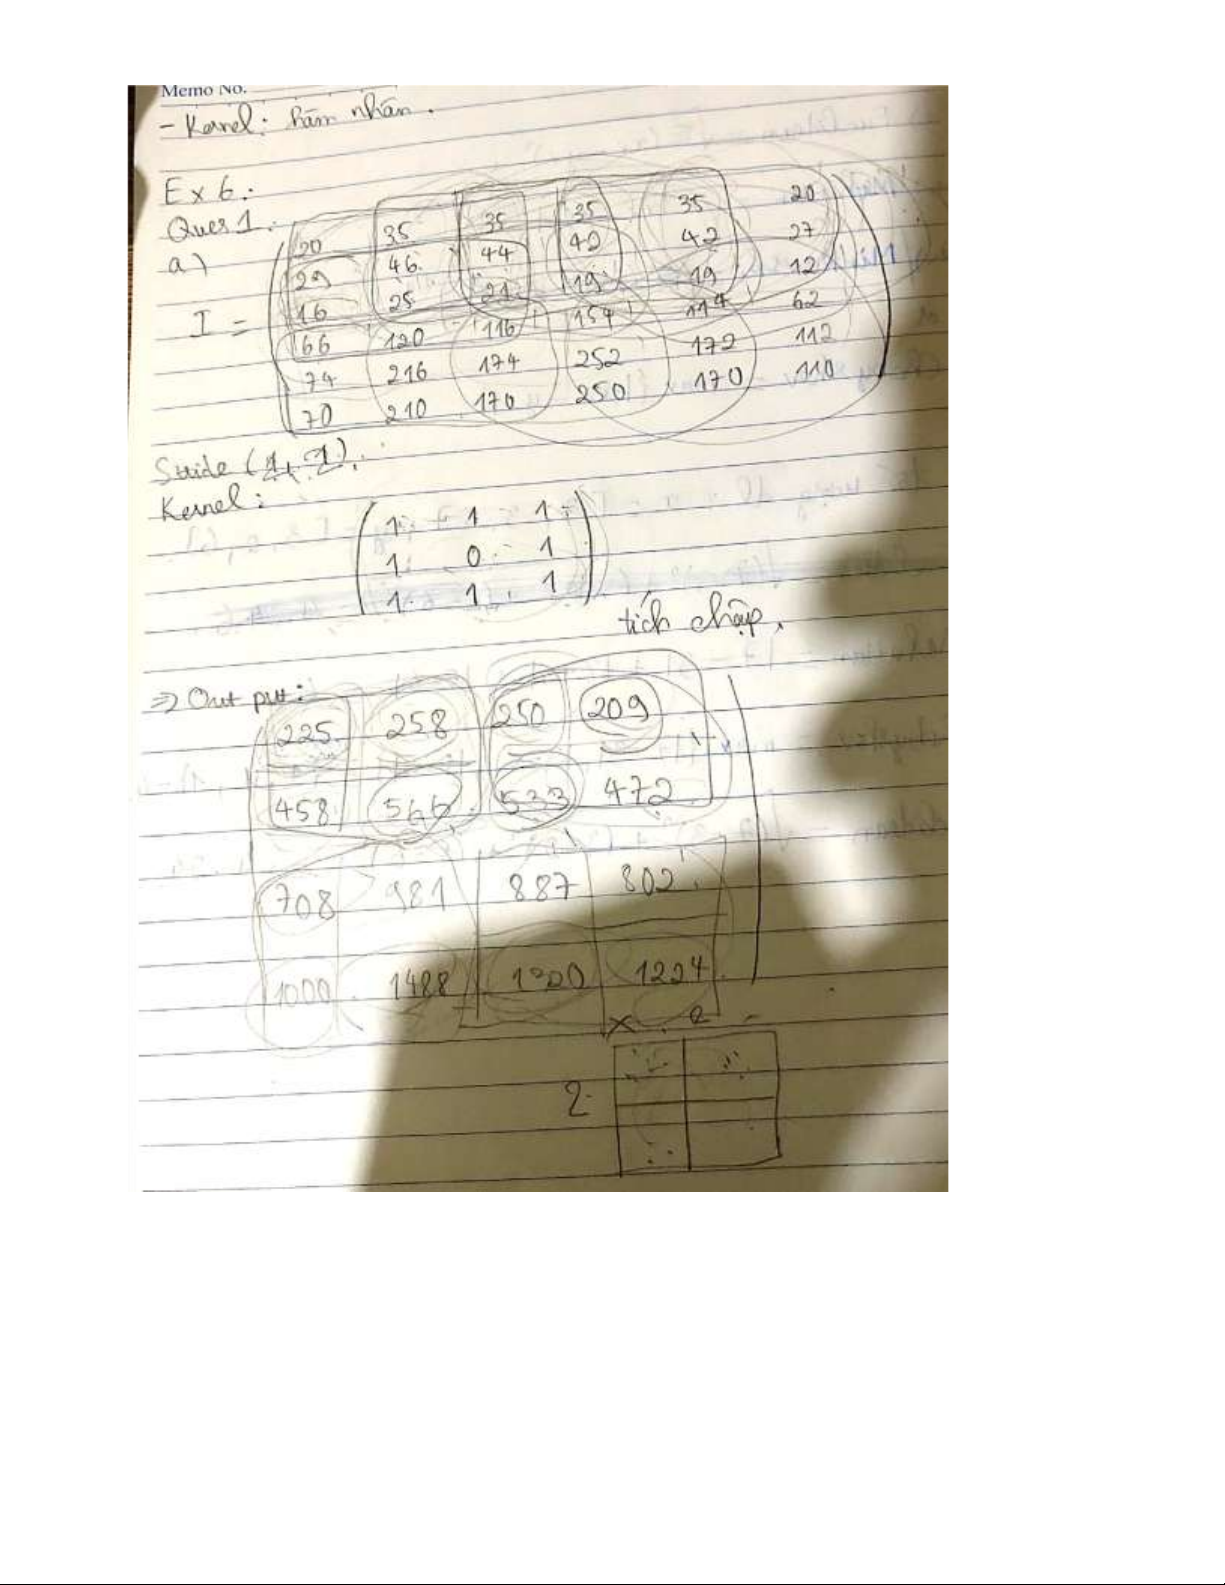 Memo No.
- Kernel: hàm nhân.
Ex 6:
Ques 1.
a)
I =
20 35 35 35 35 20
29 46 44 42 42 27
16 25 21 19 19 12
66 120 116 154 114 62
74 216 174 252 172 112
70 210 170 250 170 110
Stride (1, 1).
Kernel:
1 1 1
1 0 1
1 1 1
tích chập.
=> Out put:
225 258 250 209
458 566 533 472
708 981 887 802
1000 1488 1320 1224
2